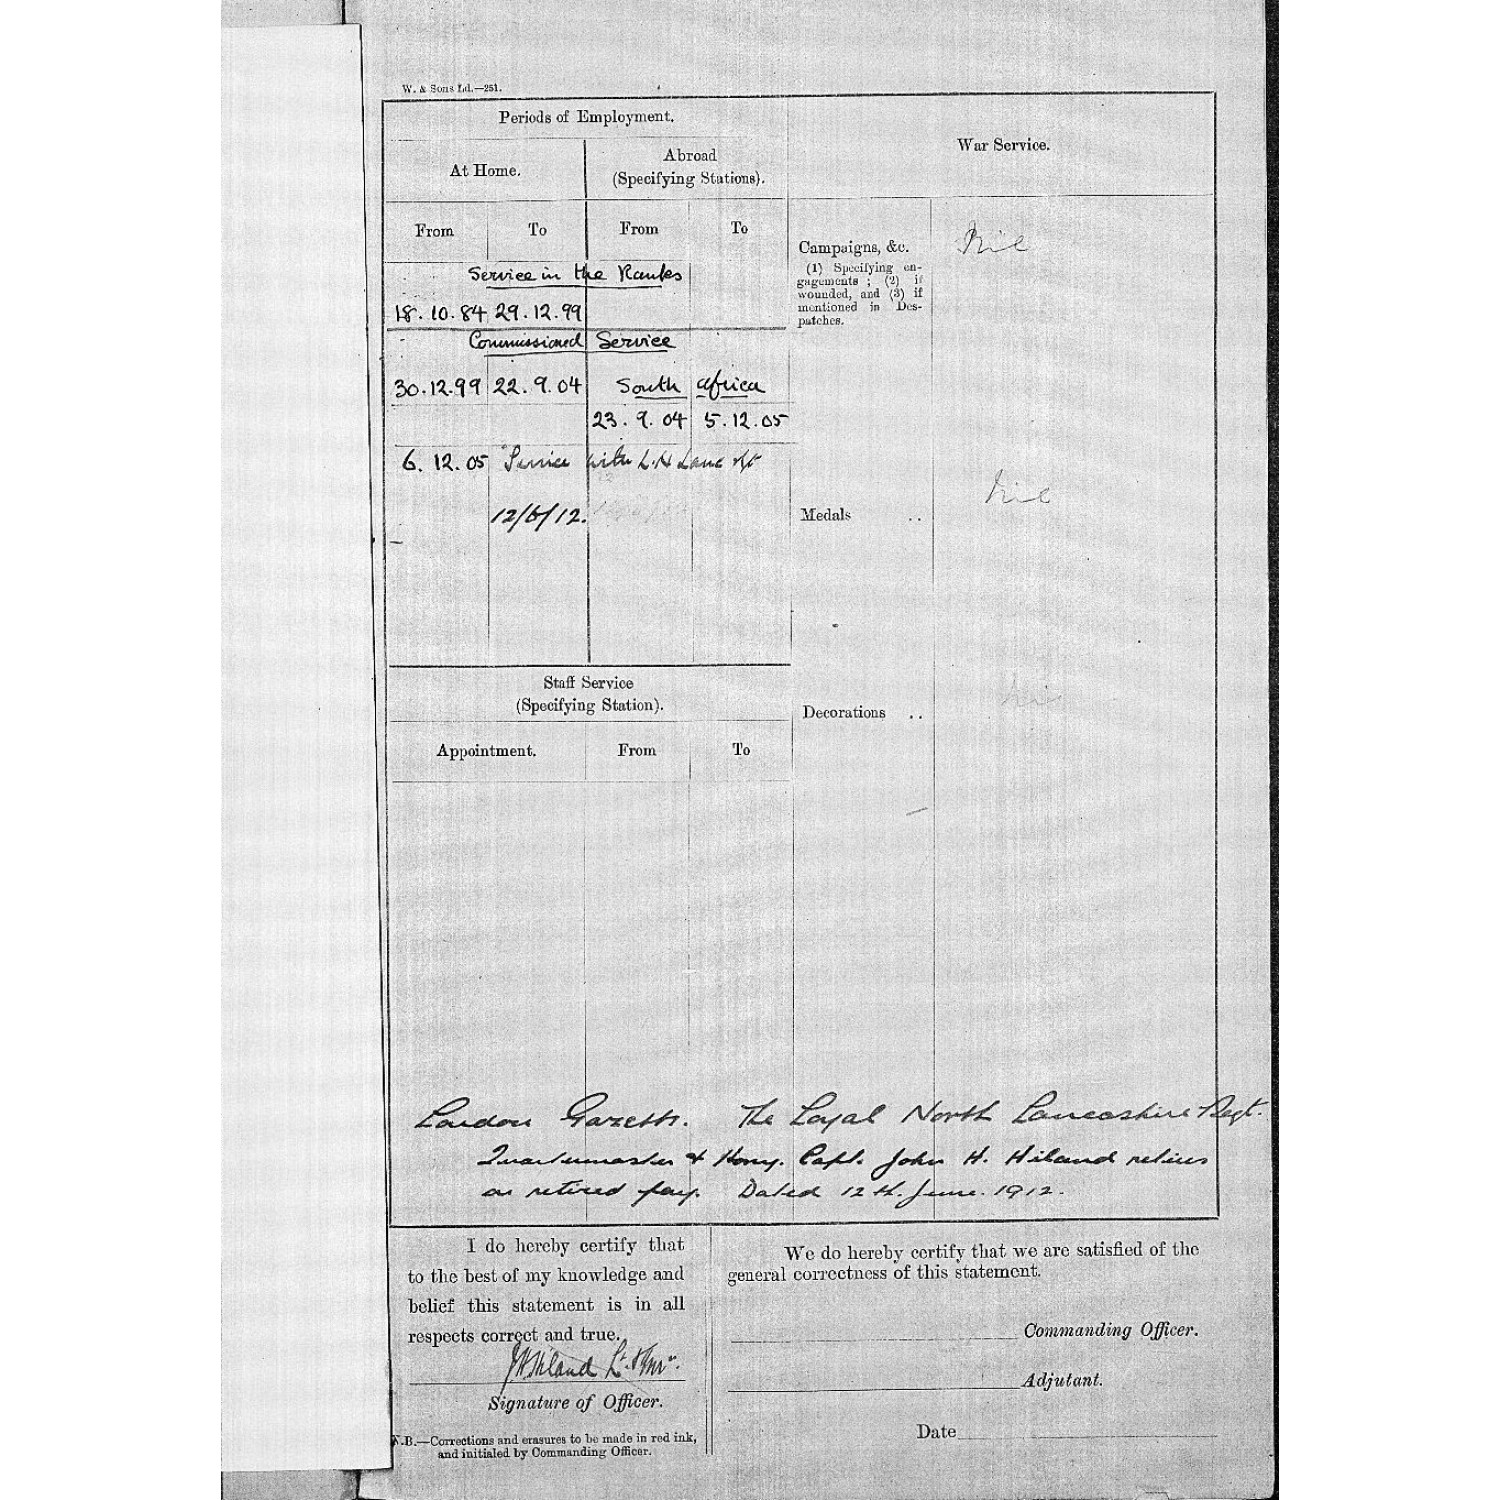 W. & Sons Ld.—251.
Periods of Employment.
War Service.
At Home.
Abroad
(Specifying Stations).
From To From To
Service in the Ranks
18.10.84 29.12.99
Commissioned Service
30.12.99 22.9.04 South Africa
23.9.04 5.12.05
6.12.05 Service with L.N Lanc
12/6/12.
Campaigns, &c. Nil
(1) Specifying en-
gagements; (2) if
wounded, and (3) if
mentioned in Des-
patches.
Medals .. Nil
Decorations .. Nil
Staff Service
(Specifying Station).
Appointment. From To
London Gazette. The Loyal North Lancashire Regt.
Quartermaster & Hony. Capt. John H. Hiland retires
on retired pay. Dated 12th. June. 1912.
I do hereby certify that
to the best of my knowledge and
belief this statement is in all
respects correct and true.
JHHiland Lt. & Qmr.
Signature of Officer.
N.B.—Corrections and erasures to be made in red ink,
and initialed by Commanding Officer.
We do hereby certify that we are satisfied of the
general correctness of this statement.
Commanding Officer.
Adjutant.
Date